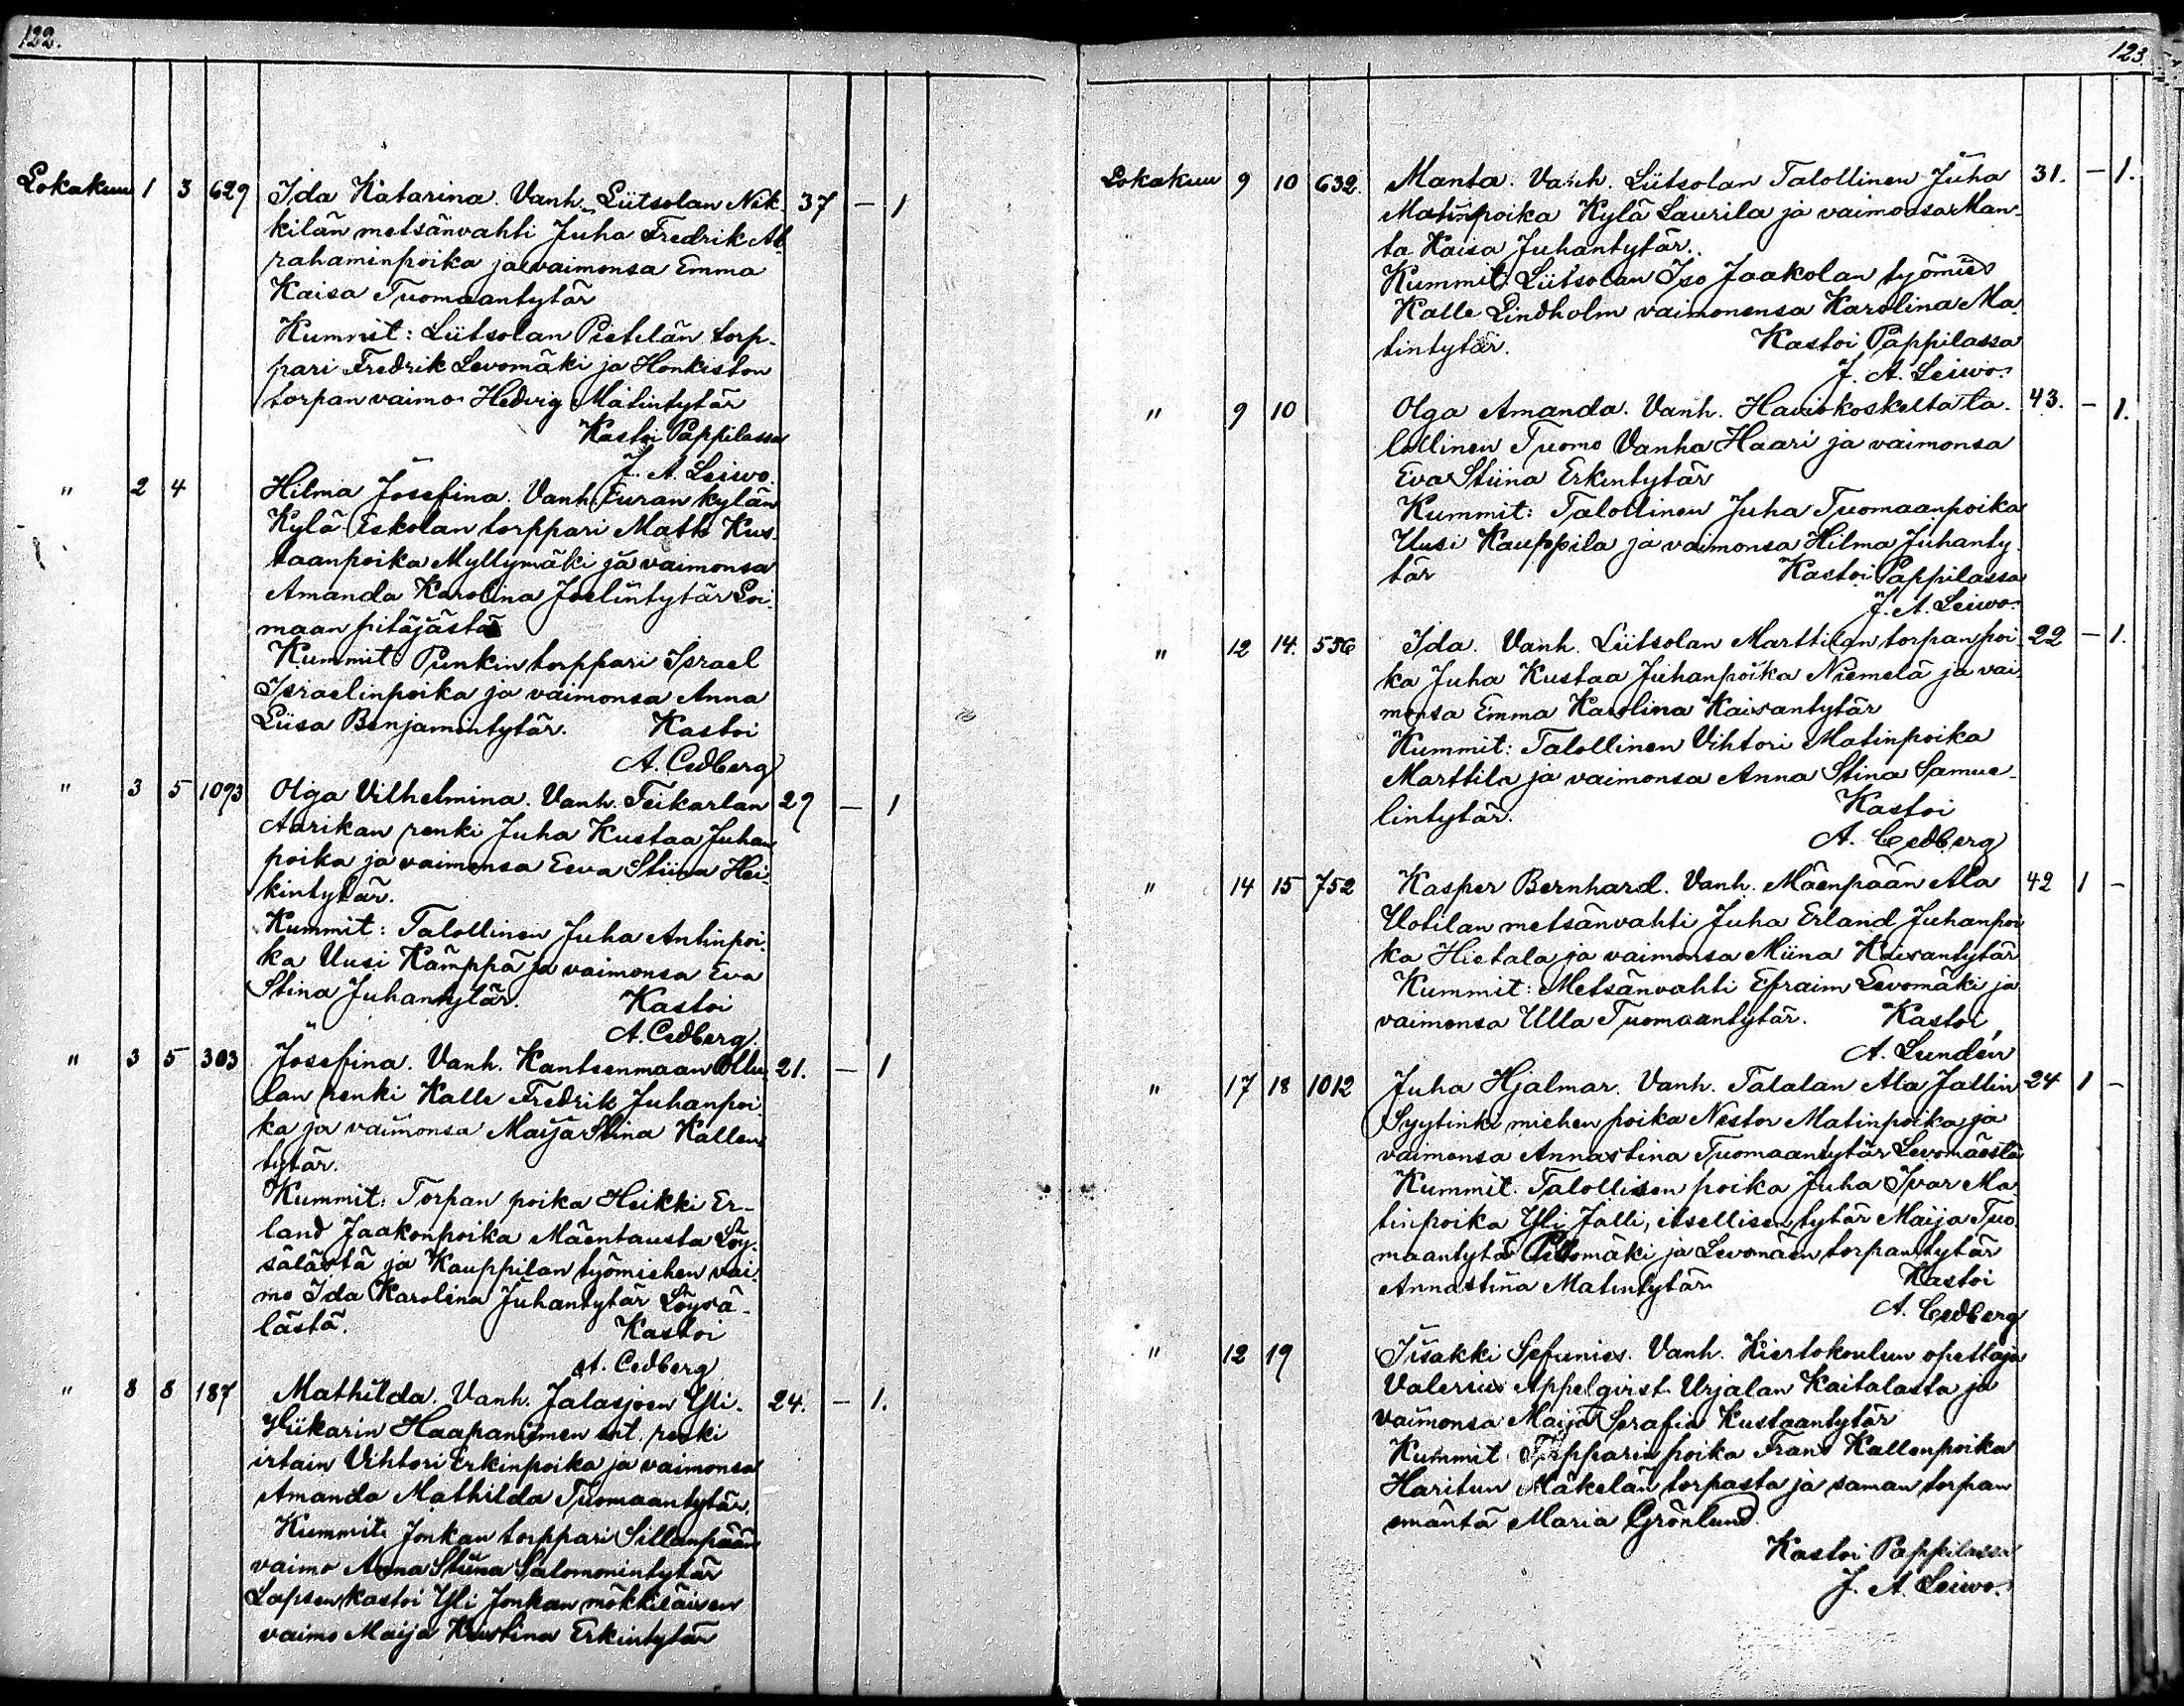 122.
Lokakuun 1 3 629 Ida Katarina. Vanh. Liitsolan Nik- 37 — 1
kilän metsänvahti Juha Fredrik Ab-
rahaminpoika ja vaimonsa Emma
Kaisa Tuomaantytär
Kummit: Liitsolan Pietilän torp-
pari Fredrik Levomäki ja Honkiston
torpan vaimo Hedvig Matintytär
Kastoi Pappilassa
J. A. Leiwo.
" 2 4 Hilma Josefina. Vanh. Euran kylän
Kylä Eskolan torppari Matti Kus-
taanpoika Myllymäki ja vaimonsa
Amanda Karolina Joelintytär Loi-
maan pitäjästä
Kummit: Punkin torppari Israel
Israelinpoika ja vaimonsa Anna
Liisa Benjamintytär. Kastoi
A. Cedberg
" 3 5 1093 Olga Vilhelmina. Vanh. Teikarlan 29 — 1
Aarikan renki Juha Kustaa Juhan
poika ja vaimonsa Eeva Stiina Hei-
kintytär.
Kummit: Talollinen Juha Antinpoi-
ka Uusi Kämppä ja vaimonsa Eva
Stina Juhantytär. Kastoi
A. Cedberg.
" 3 5 303 Josefina. Vanh. Kantsenmaan Ollu- 21. — 1
lan renki Kalle Fredrik Juhanpoi-
ka ja vaimonsa Maija Stina Kallen-
tytär.
Kummit: Torpan poika Heikki Er-
land Jaakonpoika Mäentausta Löy-
sälästä ja Kauppilan työmiehen vai-
mo Ida Karolina Juhantytär Löysä-
lästä. Kastoi
A. Cedberg
" 8 8 187 Mathilda. Vanh. Jalasjoen Yli- 24. — 1.
Hiikarin Haapaniemen ent. renki
irtain Vihtori Erkinpoika ja vaimonsa
Amanda Mathilda Tuomaantytär.
Kummit: Jonkan torppari Sillanpään
vaimo Anna Stiina Salomonintytär
Lapsen kastoi Yli Jonkan mökkiläisen
vaimo Maija Kristina Erkintytär
123.
Lokakuun 9 10 632. Manta. Vanh. Liitsolan Talollinen Juha 31. — 1.
Matinpoika Kylä Laurila ja vaimonsa Man-
ta Kaisa Juhantytär.
Kummit: Liitsolan Iso Jaakolan työmies
Kalle Lindholm vaimonensa Karolina Ma-
tintytär. Kastoi Pappilassa
J. A. Leiwo.
" 9 10 Olga Amanda. Vanh. Haviokoskelta ta- 43. — 1.
lollinen Tuomo Vanha Haari ja vaimonsa
Eva Stiina Erkintytär
Kummit: Talollinen Juha Tuomaanpoika
Uusi Kauppila ja vaimonsa Hilma Juhanty-
tär Kastoi Pappilassa
J. A. Leiwo.
" 12 14. 556 Ida. Vanh. Liitsolan Marttilan torpan poi- 22 — 1.
ka Juha Kustaa Juhanpoika Niemelä ja vai-
monsa Emma Karolina Kaisantytär
Kummit: Talollinen Vihtori Matinpoika
Marttila ja vaimonsa Anna Stina Samue-
lintytär. Kastoi
A. Cedberg
" 14 15 752 Kasper Bernhard. Vanh. Mäenpään Ala 42 1 —
Uotilan metsänvahti Juha Erland Juhanpoi
ka Hietala ja vaimonsa Miina Kaisantytär
Kummit: Metsänvahti Efraim Levomäki ja
vaimonsa Ulla Tuomaantytär. Kastoi
A. Lundén
" 17 18 1012 Juha Hjalmar. Vanh. Talalan Ala Jallin 24 1 —
Syytinki miehen poika Nestor Matinpoika ja
vaimonsa Annastina Tuomaantytär Levomäestä
Kummit. Talollisen poika Juha Ivar Ma-
tinpoika Yli Jalli, itsellisen tytär Maija Tuo-
maantytär Peltomäki ja Levomäen torpan tytär
Annastina Matintytär Kastoi
A. Cedberg
" 12 19 Iisakki Sefanies. Vanh. Kiertokoulun opettaja
Valerius Appelqvist Urjalan Kaitalasta ja
vaimonsa Maija Serafia Kustaantytär
Kummit Torpparin poika Frans Kallenpoika
Haritun Mäkelän torpasta ja saman torpan
emäntä Maria Grönlund.
Kastoi Pappilassa
J. A. Leiwo.